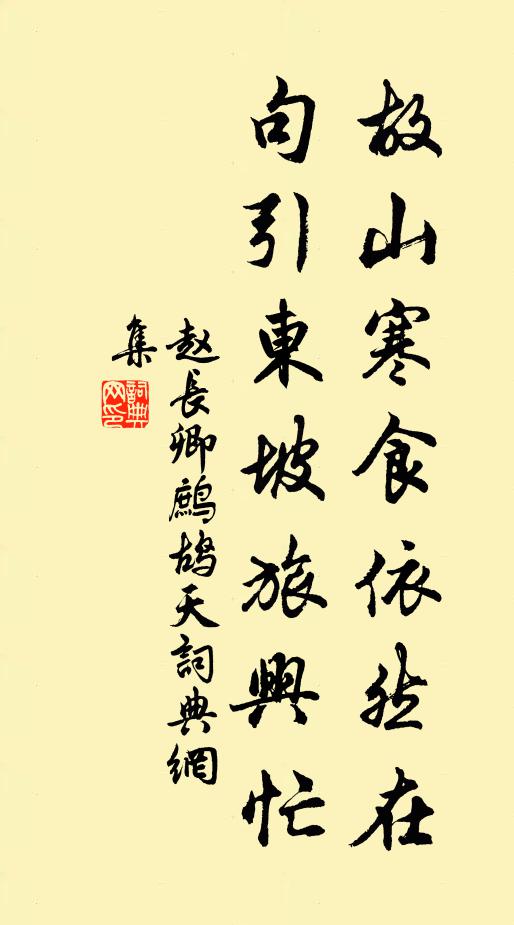 故山寒食依然在
句引東坡旅興忙
赵長卿鷓鴣天詞典網
集
詞典
网印